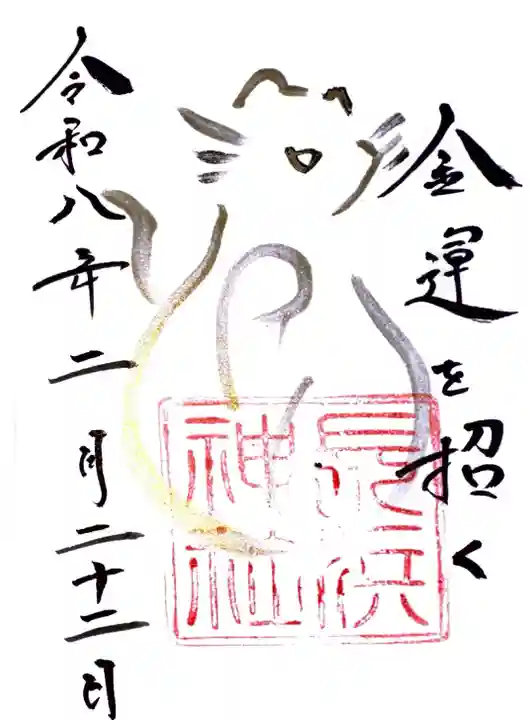 金運を招く
長浜
神社
令和八年二月二十二日